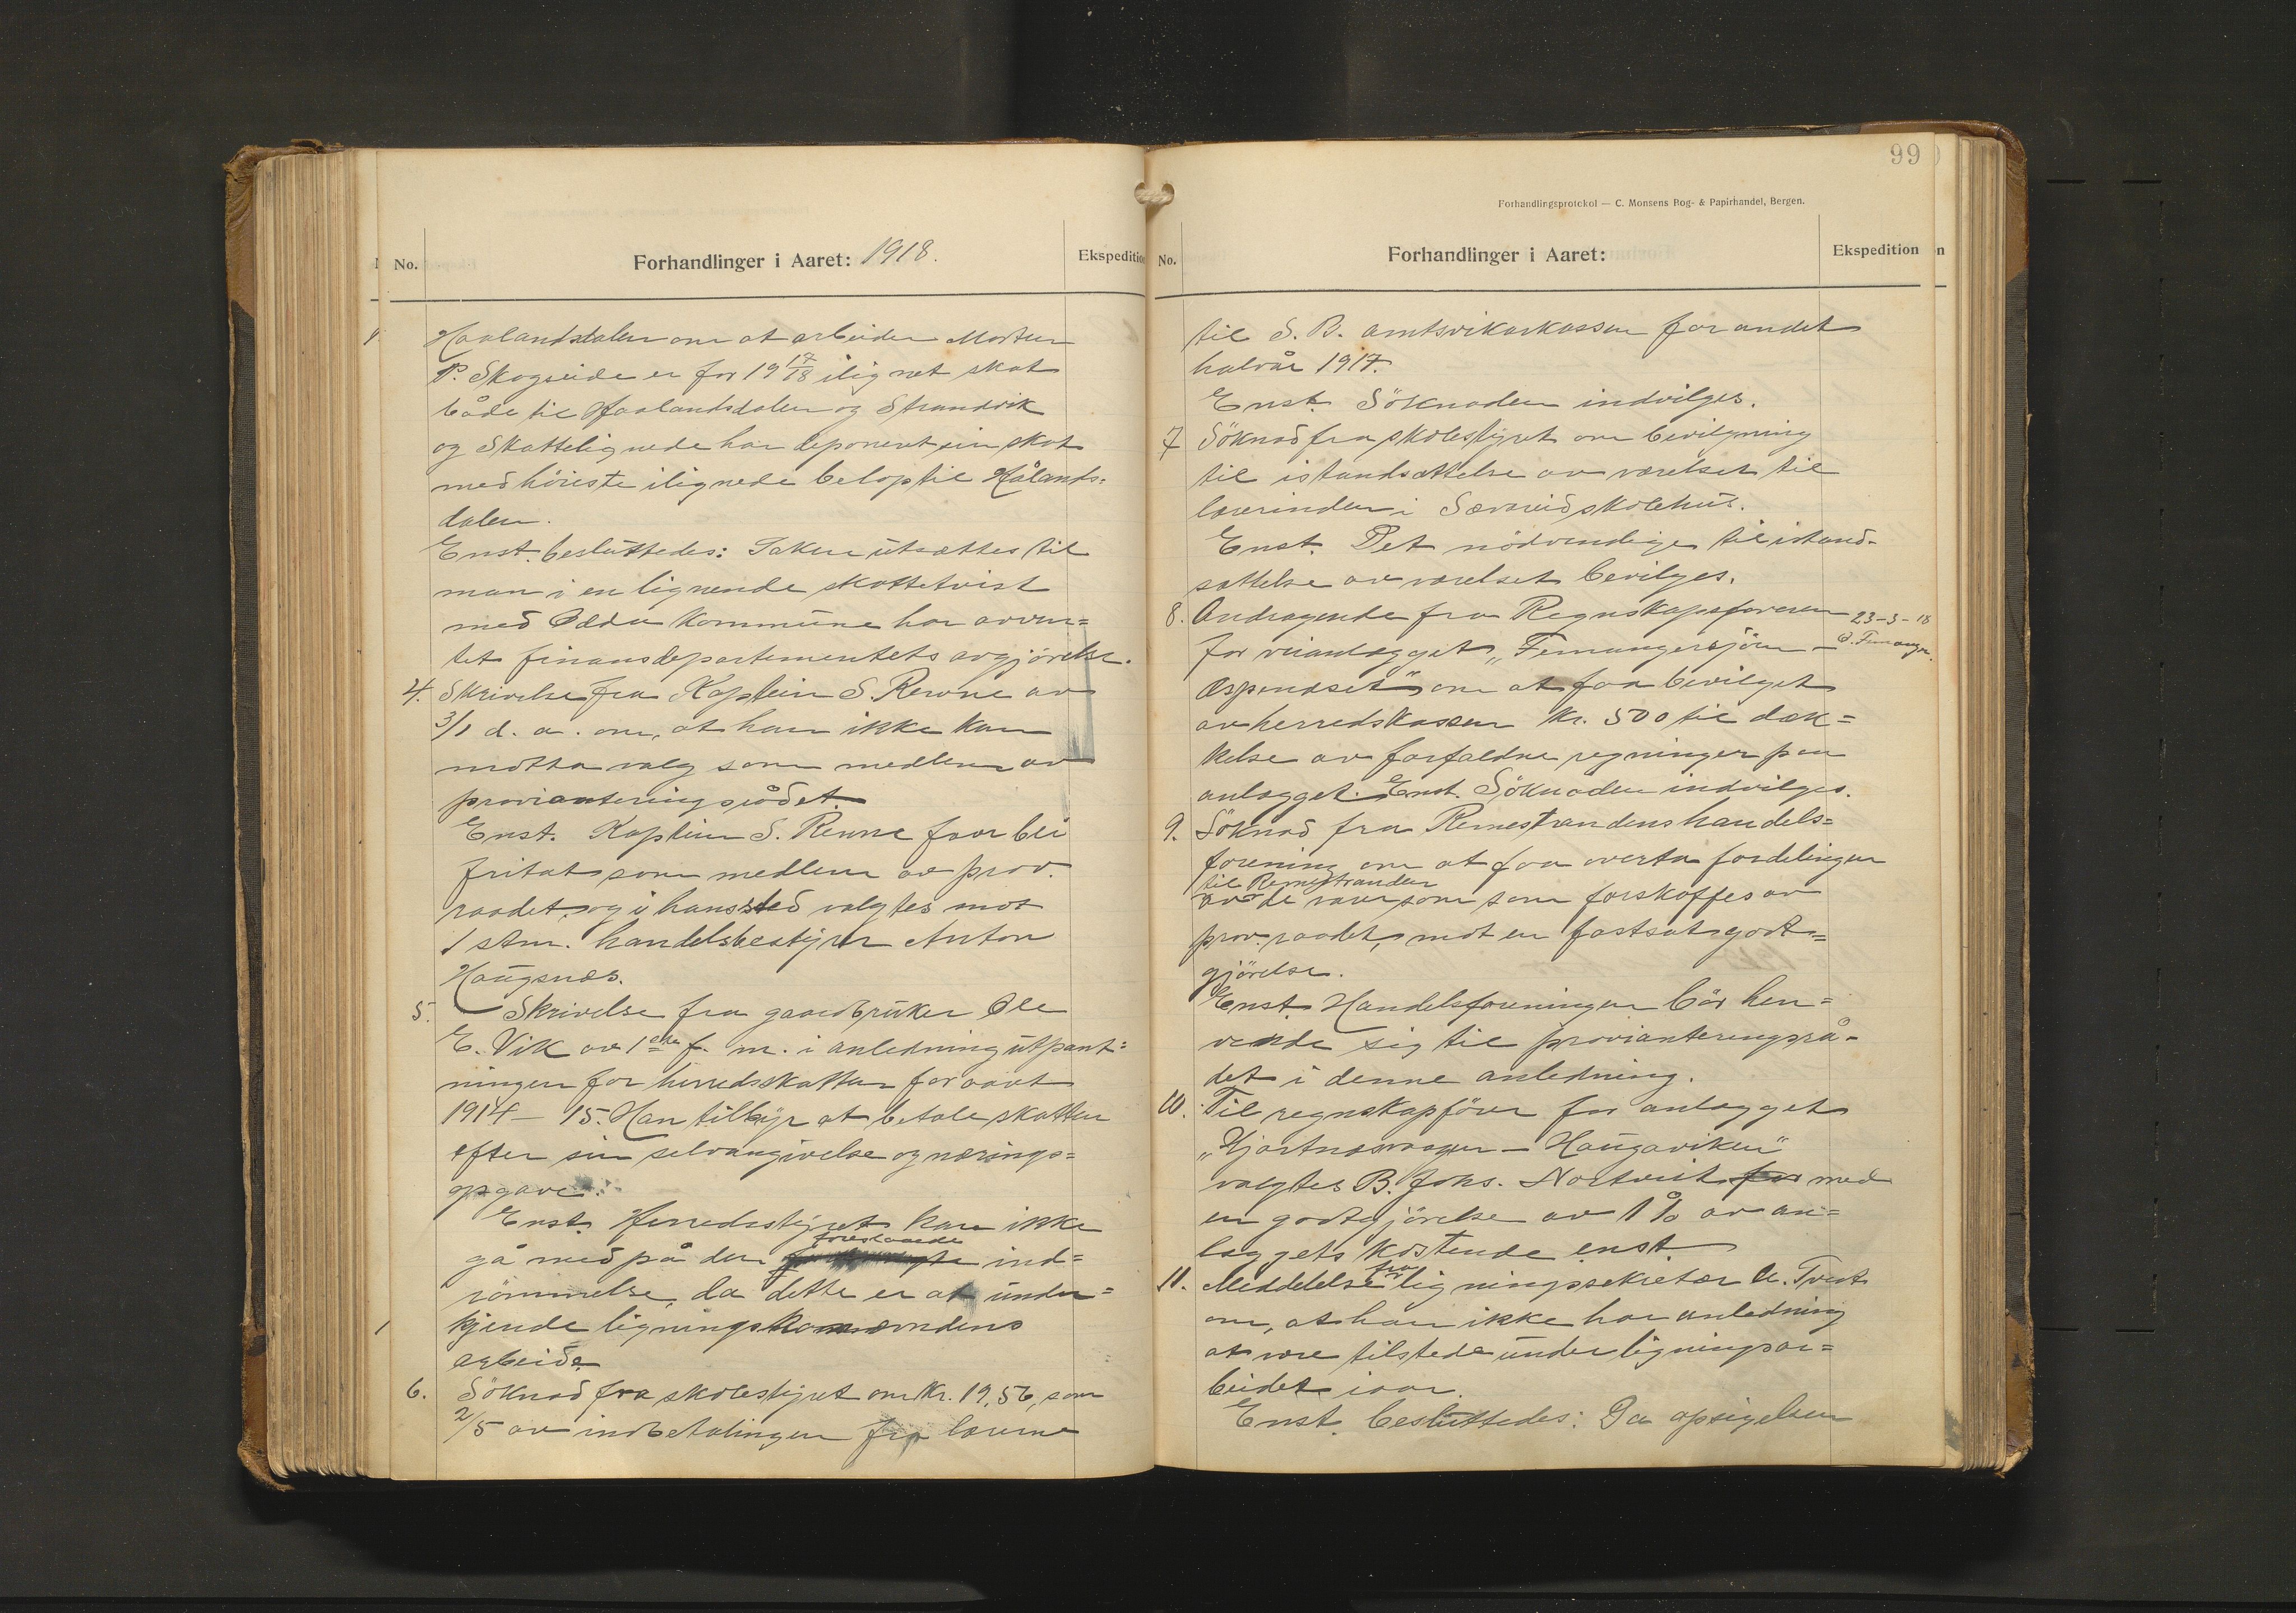 No.
Forhandlinger i Aaret: 1918.
Ekspedition
Haalandsdalen om at arbeider Morten
P. Skogseide er for 19 17/18 ilignet skat
både til Haalandsdalen og Strandvik
og Skattelignede har deponert sin skat
med höieste ilignede belop til Hålands=
dalen.
Enst. besluttedes: Saken utsættes til
man i en lignende skattetvist
med Odda kommune har avven=
tet finansdepartementets avgjörelse.
4. Skrivelse fra Kaptein S. Revne av
3/1 d. a. om, at han ikke kan
motta valg som medlem av
provianteringsrådet.
Enst. Kaptein S. Revne faar bli
fritat som medlem av prov.
raadet, og i hans sted valgtes mot
1 stm. handelsbestyrer Anton
Haugsnæs.
5. Skrivelse fra gaardbruker Ole
E. Vik av 1ste f. m. i anledning utpant=
ningen for herredsskatten for aaret
1914 - 15. Han tilbyr at betale skatten
efter sin selvangivelse og nærings=
opgave.
Enst. Herredsstyret kan ikke
gå med på den forestaaede ind=
römmelse, da dette er at under=
kjende ligningsnævndens
arbeide.
6. Söknad fra skolestyret om kr. 19,56, som
2/5 av indbetalingen fra lærerne
99
Forhandlingsprotokol — C. Monsens Bog- & Papirhandel, Bergen.
No.
Forhandlinger i Aaret:
Ekspedition
til S. B. amtsvikarkassen for andet
halvår 1917.
Enst. Söknaden indvilges.
7 Söknad fra skolestyret om bevilgning
til istandsættelse av værelset til
lærerinden i Sævareid skolehus.
Enst. Det nödvendige til istand-
sættelse av værelset bevilges.
8. Andragende fra Regnskapsföreren
23-3-18
for veianlægget „Femangersjöen -
O. Femanger.
Æspenæset" om at faa bevilget
av herredskassen kr. 500 til dæk=
kelse av forfaldne regninger paa
anlægget. Enst. Söknaden indvilges.
9. Söknad fra Remestrandens handels=
forening om at faa overta fordelingen
til Remestranden
av de varer som som forskaffes av
prov. raadet, mot en fastsat godt=
gjörelse.
Enst. Handelsforeningen bör hen=
vende sig til provianteringsrå-
det i denne anledning.
10. Til regnskapförer for anlægget
„Hjartnesvaagen - Haugaviken"
valgtes B. Johs. Nortveit for med
en godtgjörelse av 1 % av an=
læggets kostende enst.
11. Meddelelse fra ligningssekretær A. Tveit
om, at han ikke har anledning
at være tilstede under ligningsar=
beidet iaar.
Enst. besluttedes: Da opsigelsen